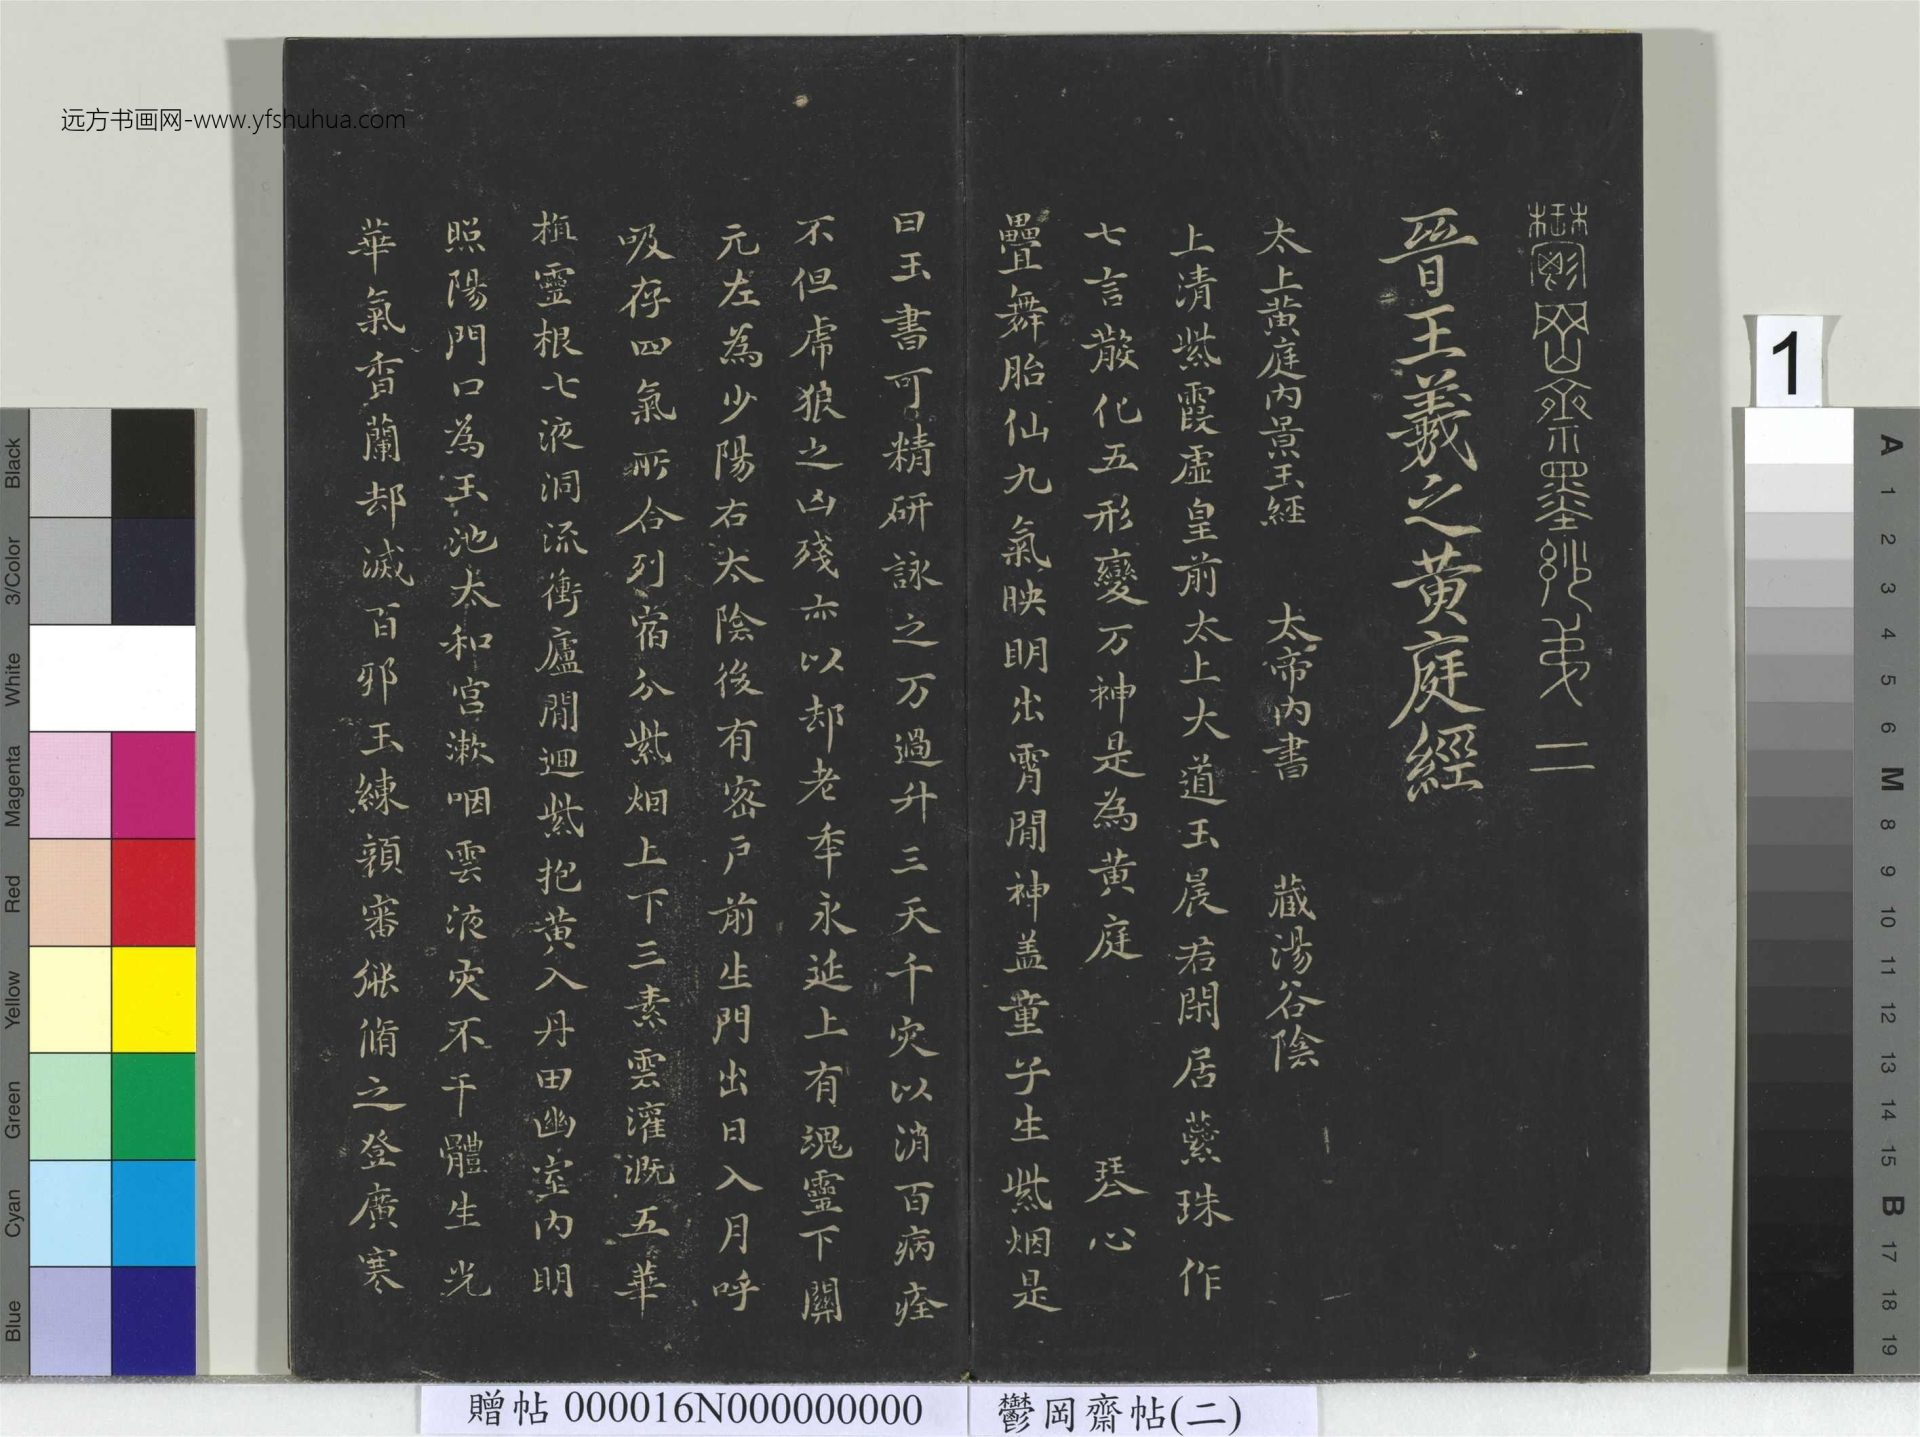 鬱岡齋墨妙弟二
晉王羲之黃庭經
太上黃庭內景玉經 太帝內書 藏湯谷陰
上清紫霞虛皇前太上大道玉晨君閑居蘂珠作
七言散化五形變万神是為黃庭 琴心
疊舞胎仙九氣映明出霄間神盖童子生紫烟是
曰玉書可精研詠之万過升三天千灾以消百病痊
不但虎狼之凶殘亦以却老年永延上有魂靈下關
元左為少陽右太陰後有密戶前生門出日入月呼
吸存四氣所合列宿分紫烟上下三素雲灌溉五華
植靈根七液洞流衝廬間迴紫抱黃入丹田幽室內明
照陽門口為玉池太和宮漱咽雲液灾不干體生光
華氣香蘭却滅百邪玉練顏審能脩之登廣寒
远方书画网-www.yfshuhua.com
贈帖 000016N000000000
鬱岡齋帖(二)
Black
3/Color
White
Magenta
Red
Yellow
Green
Cyan
Blue
1
A
1
2
3
4
5
6
M
8
9
10
11
12
13
14
15
B
17
18
19